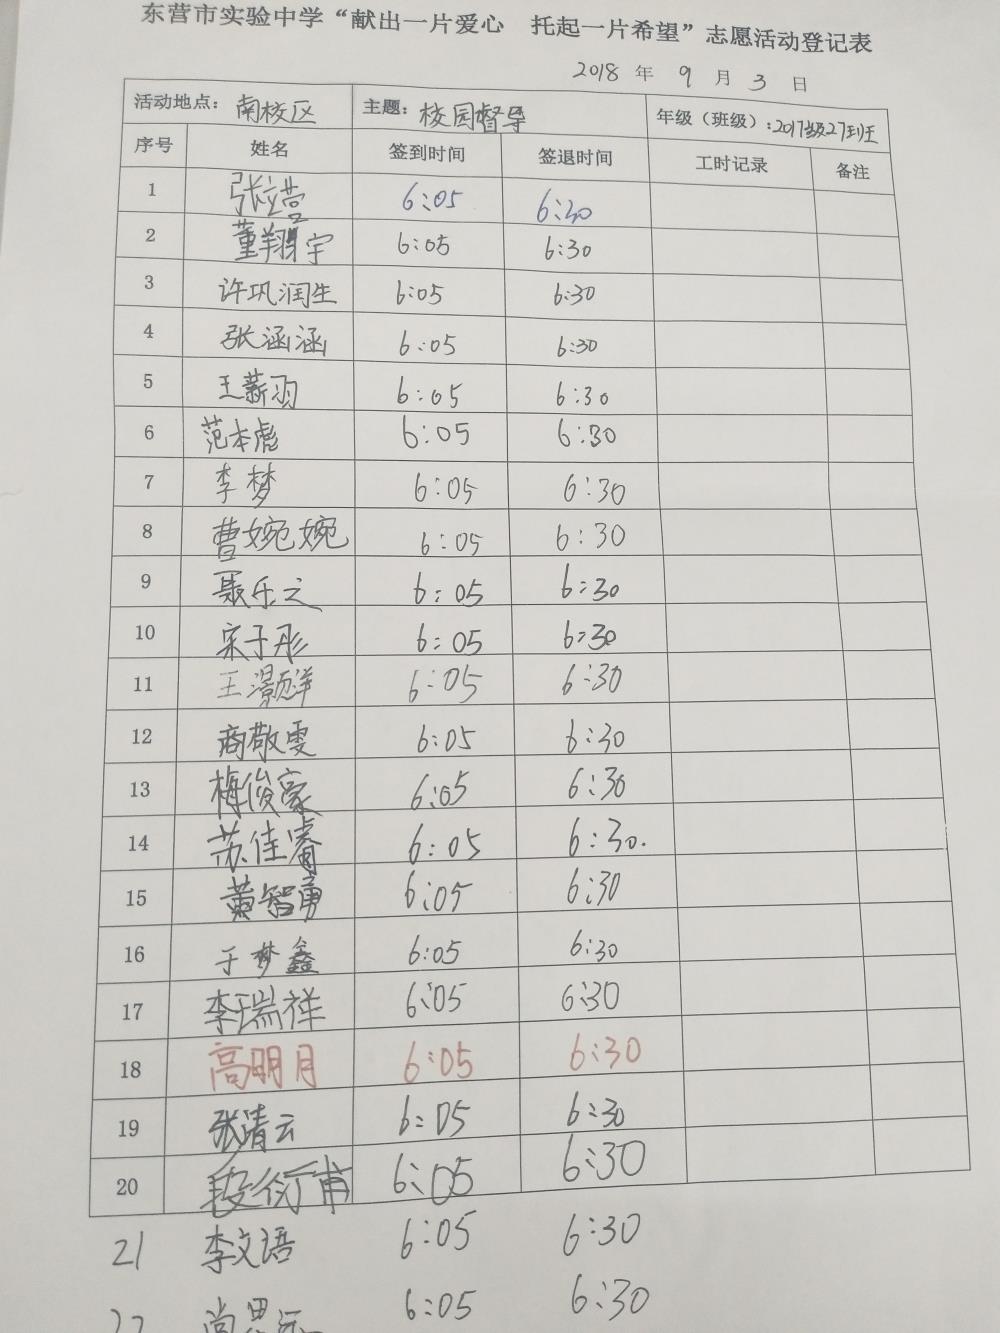 东营市实验中学“献出一片爱心 托起一片希望”志愿活动登记表
2018 年 9 月 3 日
活动地点：南校区 主题：校园督导 年级（班级）：2017级27班
序号 姓名 签到时间 签退时间 工时记录 备注
1 张立营 6:05 6:30
2 董翔宇 6:05 6:30
3 许巩润生 6:05 6:30
4 张涵涵 6:05 6:30
5 王薪羽 6:05 6:30
6 范本彪 6:05 6:30
7 李梦 6:05 6:30
8 曹婉婉 6:05 6:30
9 聂乐之 6:05 6:30
10 宋子彤 6:05 6:30
11 王灏洋 6:05 6:30
12 商敬雯 6:05 6:30
13 梅俊豪 6:05 6:30
14 苏佳睿 6:05 6:30.
15 黄智勇 6:05 6:30
16 于梦鑫 6:05 6:30
17 李瑞祥 6:05 6:30
18 高明月 6:05 6:30
19 张清云 6:05 6:30
20 段衍甫 6:05 6:30
21 李文语 6:05 6:30
22 尚思远 6:05 6:30